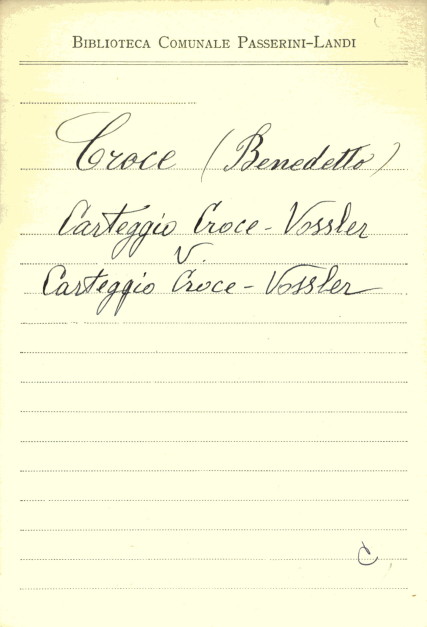 BIBLIOTECA COMUNALE PASSERINI-LANDI
Croce (Benedetto)
Carteggio Croce - Vossler
V.
Carteggio Croce - Vossler
C